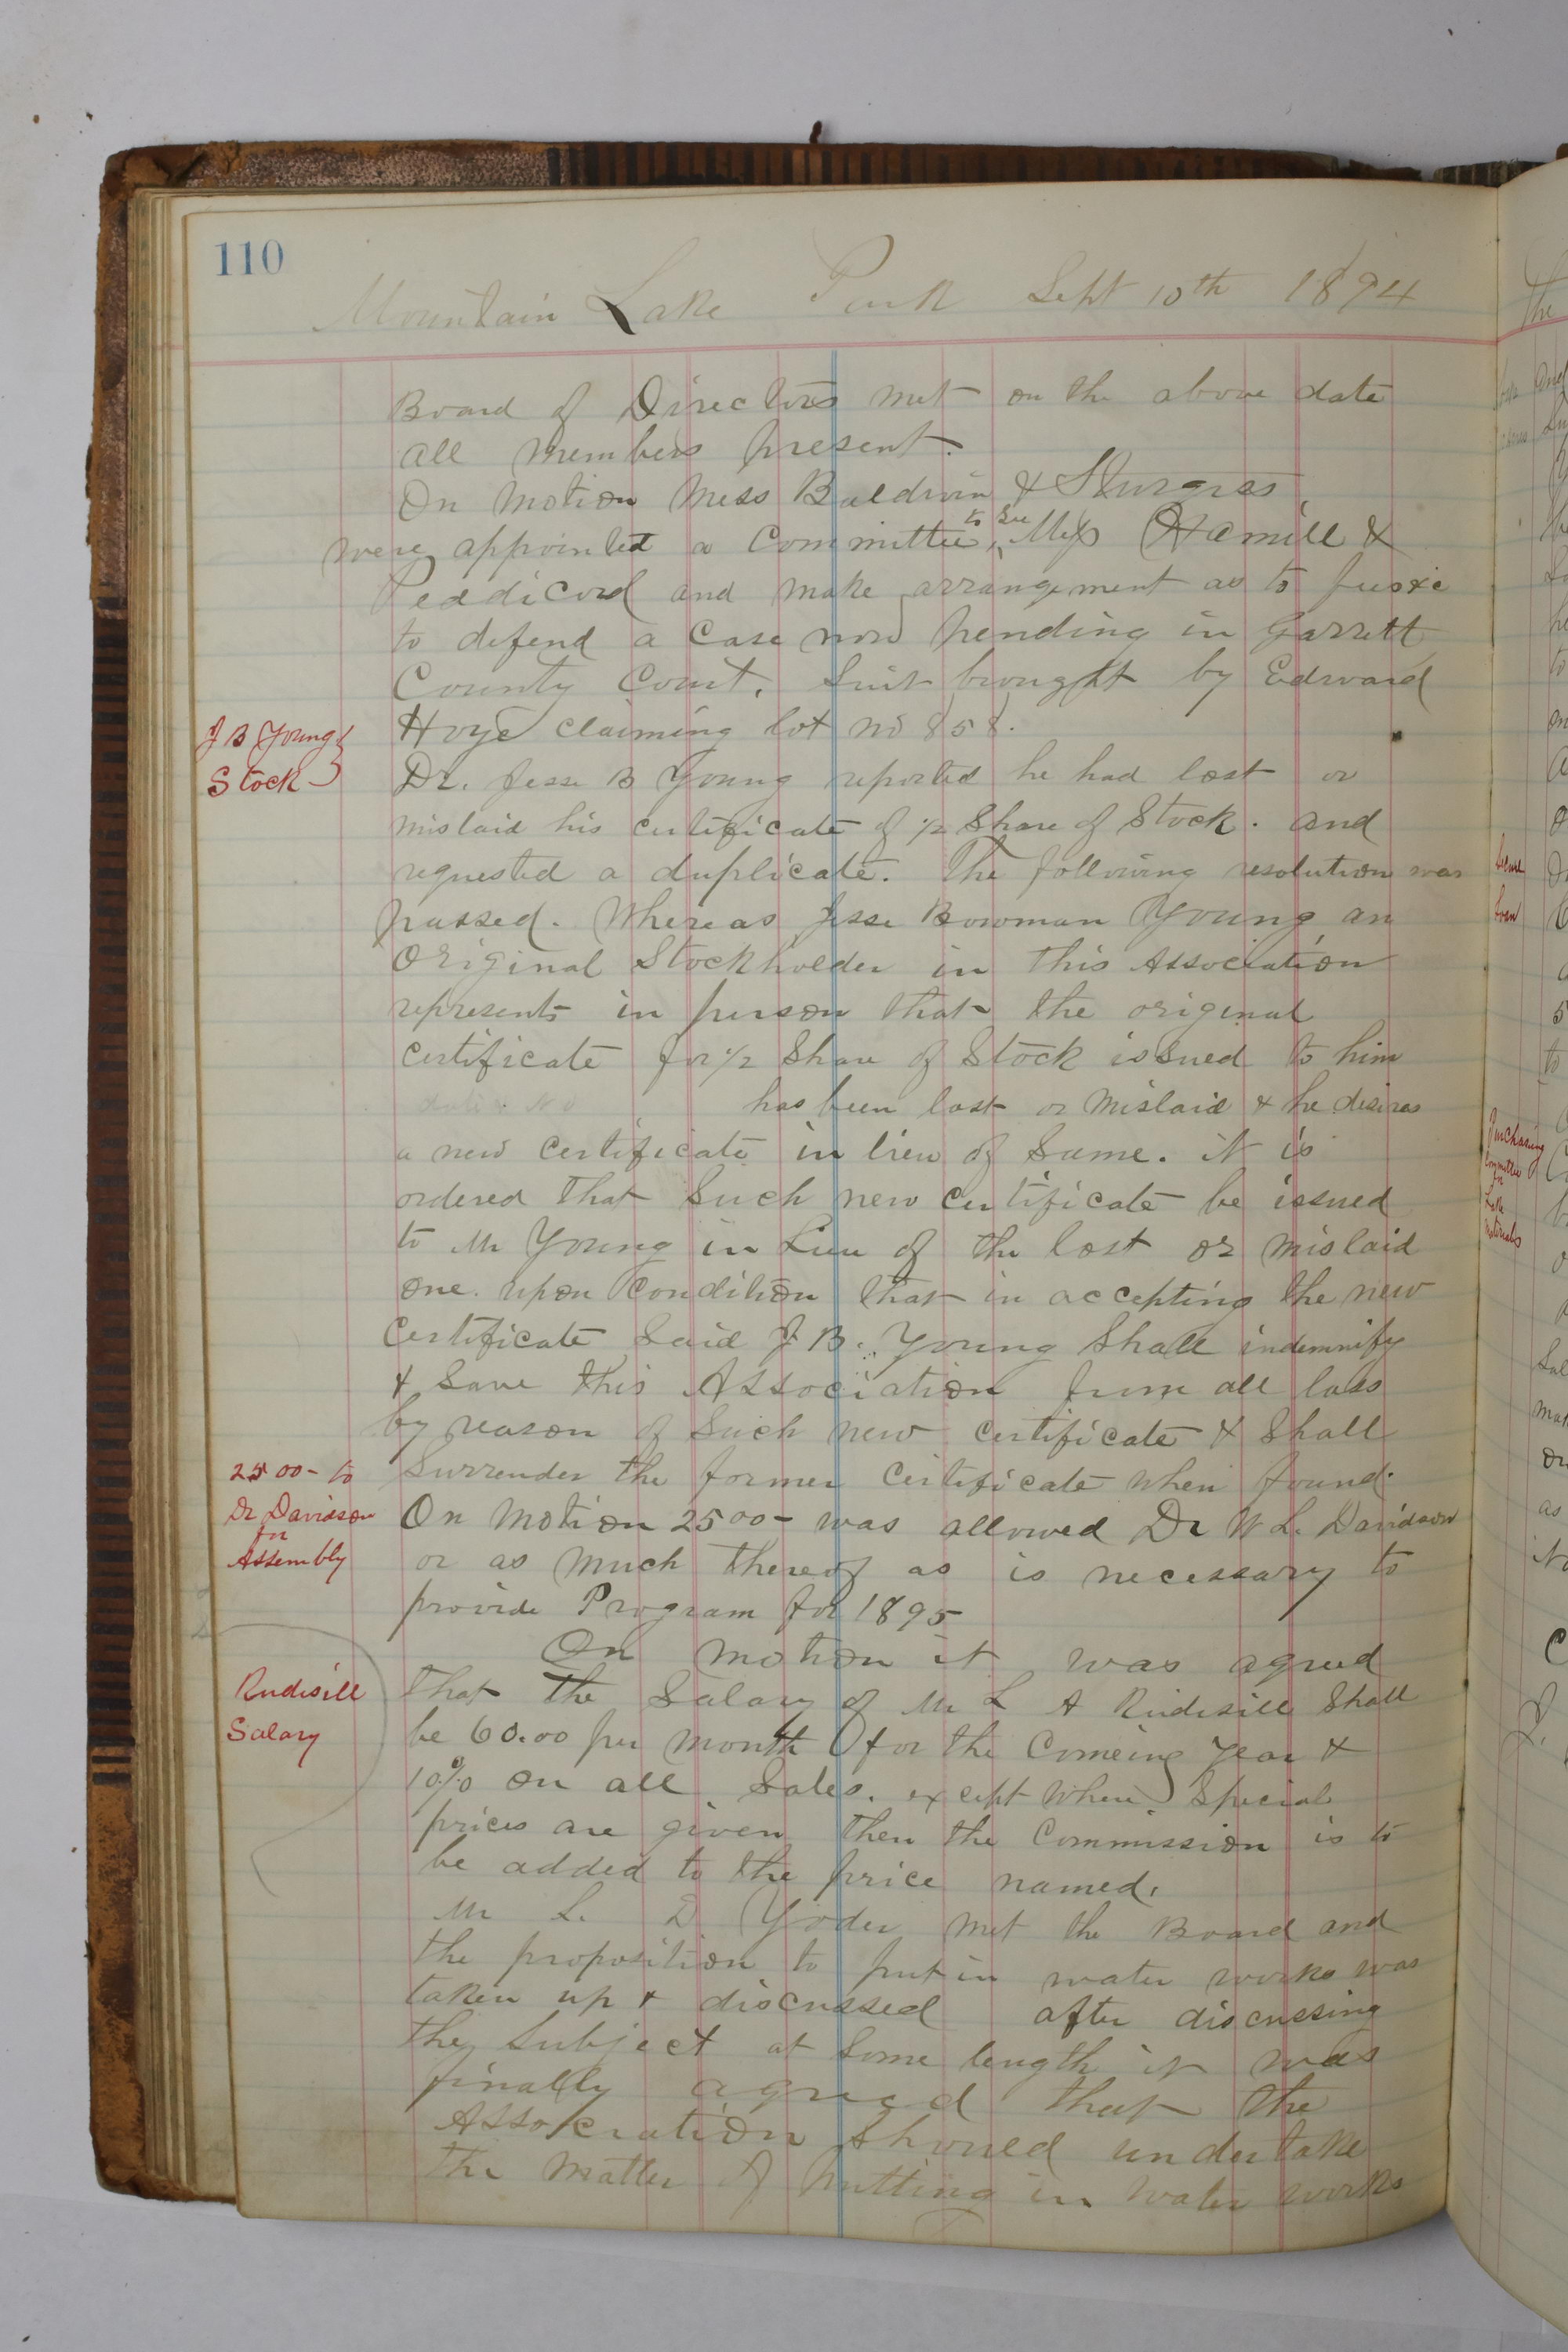 110
Mountain Lake Park Sept 10th 1894
Board of Directors met on the above date
all members present.
On motion Mess Baldwin & Sturgiss
were appointed a Committee to see Mess Hamill &
Peddicord and make arrangement as to
to defend a Case now pending in Garrett
County Court. Suit brought by Edward
Hoye claiming lot no 858.
J B Young
Stock
Dr. Jesse B Young reported he had lost or
mislaid his certificate of 1/2 Share of Stock. and
requested a duplicate. The following resolution was
passed. Whereas Jesse Bowman Young an
Original Stockholder in this Association
represents in person that the original
certificate for 1/2 Share of Stock issued to him
has been lost or mislaid & he desires
a new certificate in lieu of Same. it is
ordered that Such new certificate be issued
to Mr Young in Lieu of the lost or mislaid
one. upon condition that in accepting the new
Certificate Said J. B. Young Shall indemnify
& Save this Association from all loss
by reason of Such new certificate & Shall
Surrender the former Certificate when found.
2500- to
Dr Davidson
for
Assembly
On Motion 2500- was allowed Dr W L. Davidson
or as much thereof as is necessary to
provide Program for 1895
On motion it was agreed
Rudisill
Salary
that the Salary of Mr L A Rudisill Shall
be 60.00 per month for the Comeing Year &
10% on all Sales. except When Special
prices are given then the Commission is to
be added to the price named.
Mr L. D Yoder met the Board and
the proposition to put in water works was
taken up & discussed after discussing
the Subject at Some length it was
finally agreed that the
Association Should undertake
the Matter of putting in Water works